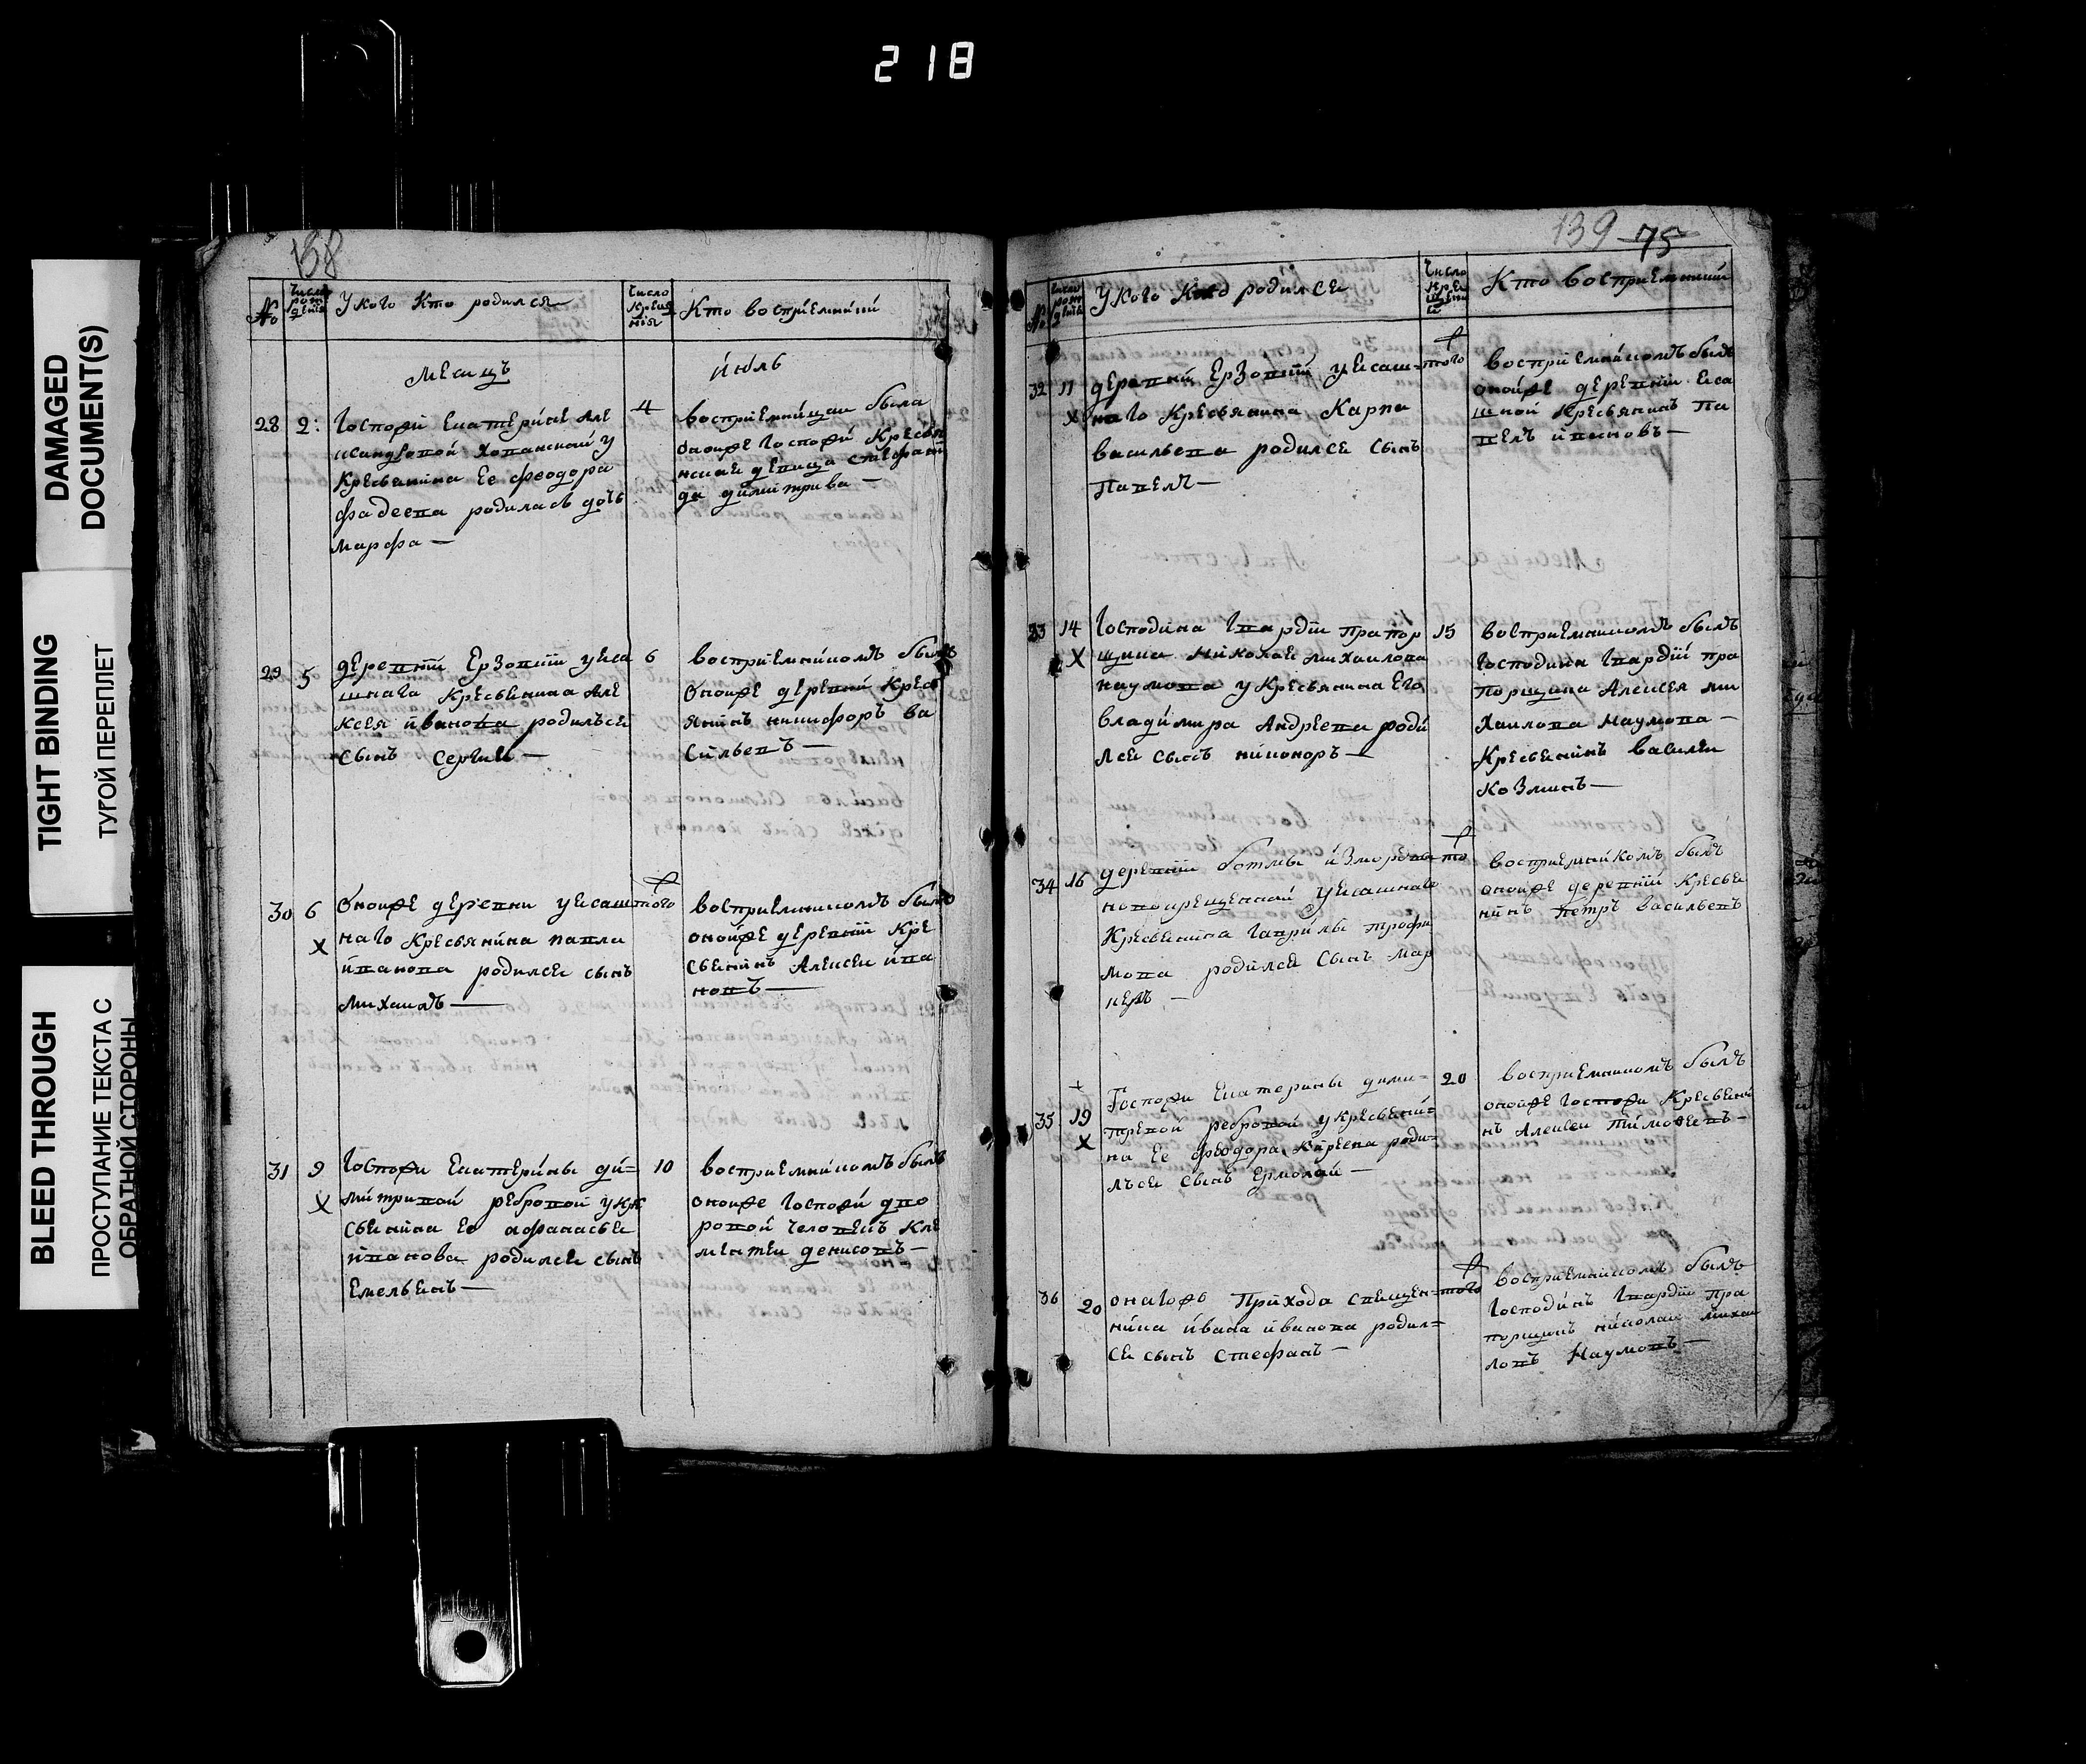 218
DAMAGED
DOCUMENT(S)
TIGHT BINDING
ТУГОЙ ПЕРЕПЛЕТ
BLEED THROUGH
ПРОСТУПАНИЕ ТЕКСТА С
ОБРАТНОЙ СТОРОНЫ
138
№ Число рождения У кого кто родился Число крещения Кто восприемники
месяцъ июль
28 2: Госпожи Екатерины Але
ксандровой Хованской у
крестьянина ее феодора
фадеева родилась дочь
марфа —
4 восприемницаю была
оноиже госпожи крестья
нская девица стефани
да димитрива —
29 5 деревни Ерзовки у яса
шнаго крестьянина Але
ксея иванова родилъся
сынъ Сергий —
6 восприемникомъ былъ
оноиже деревни крест
янинъ никифоръ ва
сильевъ —
30 6 Х Оноиже деревни у ясаш
наго крестьянина павла
иванова родился сынъ
михаилъ —
того восприемникомъ былъ
оноиже деревни кре
стьянинъ Алексеи ива
новъ —
31 9 Х Госпожи Екатерины ди=
митривой ребровой у кре
стьянина ее афанасье
иванова родился сынъ
Емельянъ —
10 восприемникомъ былъ
оноиже госпожи дво
ровой человекъ кле
ментеи денисовъ —
139 75
№ Число рождения У кого кто родился Число крещении Кто восприемники
32 11 Х деревни Ерзовки у ясаш=
наго крестьянина Карпа
васильева родился сынъ
Павелъ —
того восприемникомъ былъ
оноиже деревни яса
шной крестьянинъ Па
велъ ивановъ —
33 14 Х Господина гвардии прапор
щика николая михаилова
наумова у крестьянина его
владимира Андреева роди
лся сынъ никоноръ —
15 восприемникомъ былъ
господина гвардии пра
порщика Алексея ми
хаилова наумова —
крестьянинъ васили
козминъ —
34 16 деревни ботмы
новокрещенной у ясашнаго
крестьянина гаврилы трофи
мова родился сынъ мар
келъ —
то восприемникомъ былъ
оноиже деревни крестья
нинъ петръ васильевъ
35 19 Х Госпожи Екатерины дими=
тревой ребровой у крестьяни=
на ее феодора Киреева роди=
лъся сынъ Ермолай —
20 восприемникомъ былъ
оноиже госпожи крестьяни
нъ Алексеи тимофеевъ —
36 20 онагожь прихода священ=
ника ивана иванова родил=
ся сынъ Стефанъ —
того восприемникомъ былъ
господинъ гвардии пра
порщикъ николаи михаи
ловъ наумовъ —